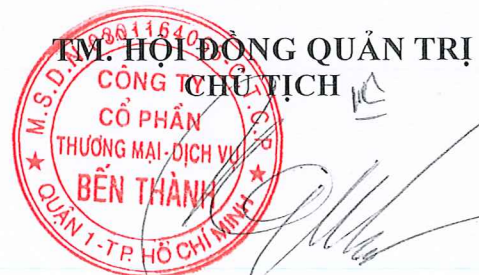 TM. HỘI ĐỒNG QUẢN TRỊ
CHỦ TỊCH
CÔNG TY
CỔ PHẦN
THƯƠNG MẠI-DỊCH VỤ
BẾN THÀNH
QUẬN 1-T.P. HỒ CHÍ MINH